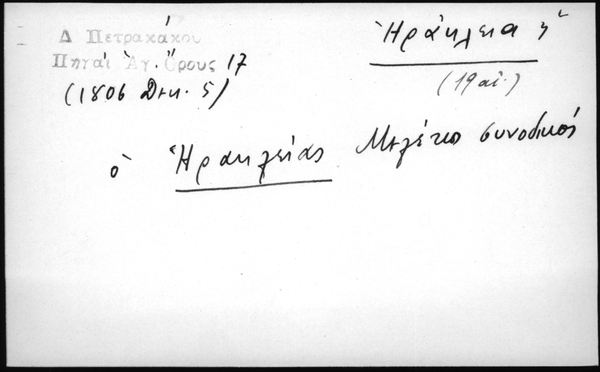 Δ Πετρακάκου
Πηγαὶ Ἁγ. Ὄρους 17
(1806 Δεκ. 5)
Ἡράκλεια ἡ
(19 αἰ.)
ὁ Ἡρακλείας Μελέτιος συνοδικός